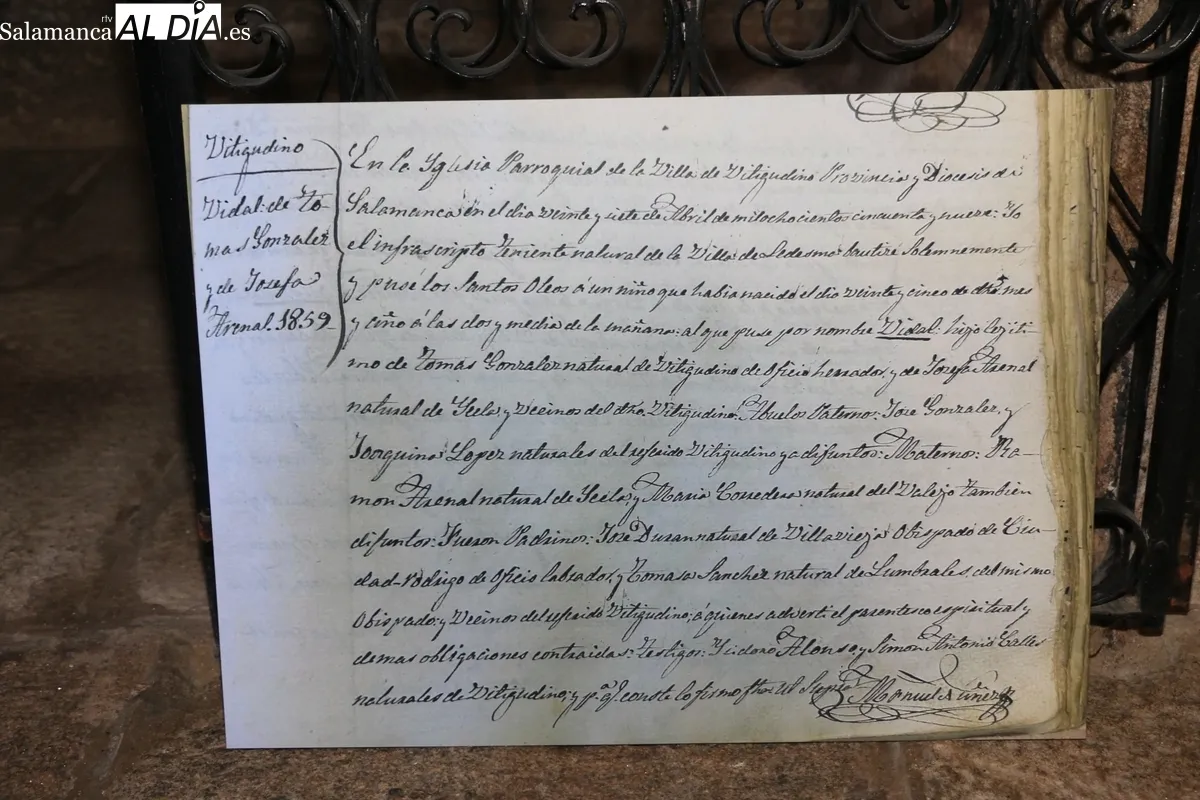 Salamanca rtv AL DÍA .es
Vitigudino
Vidal: de To-
mas Gonzalez
y de Josefa
Arenal. 1859
En la Yglesia Parroquial de la Villa de Vitigudino Provincia y Diocesis de
Salamanca en el dia veinte y siete de Abril de mil ochocientos cincuenta y nueve: Yo
el infrascripto Teniente natural de la Villa de Ledesma bautizé Solemnemente
y pusé los Santos Oleos á un niño que habia nacido el dia veinte y cinco de dho. mes
y año á las dos y media de la mañana: al que puse por nombre Vidal: hijo legiti-
mo de Tomas Gonzalez natural de Vitigudino de oficio herrador, y de Josefa Arenal
natural de Yecla, y Vecinos del dho. Vitigudino. Abuelos Paternos: Jose Gonzalez, y
Joaquina Lopez naturales del referido Vitigudino ya difuntos: Maternos: Ra-
mon Arenal natural de Yecla, y Maria Corredera natural del Valejo tambien
difuntos: Fueron Padrinos: Jose Duran natural de Villavieja Obispado de Ciu-
dad-rodrigo de oficio labrador, y Tomasa Sanchez natural de Lumbrales, del mismo
Obispado: y Vecinos del referido Vitigudino; á quienes adverti el parentesco espiritual y
demas obligaciones contraidas: Testigos: Ysidoro Alonso y Simon Antonio Calles
naturales de Vitigudino; y pa. qe. conste lo firmo fha. ut Supra
Manuel Nuñez